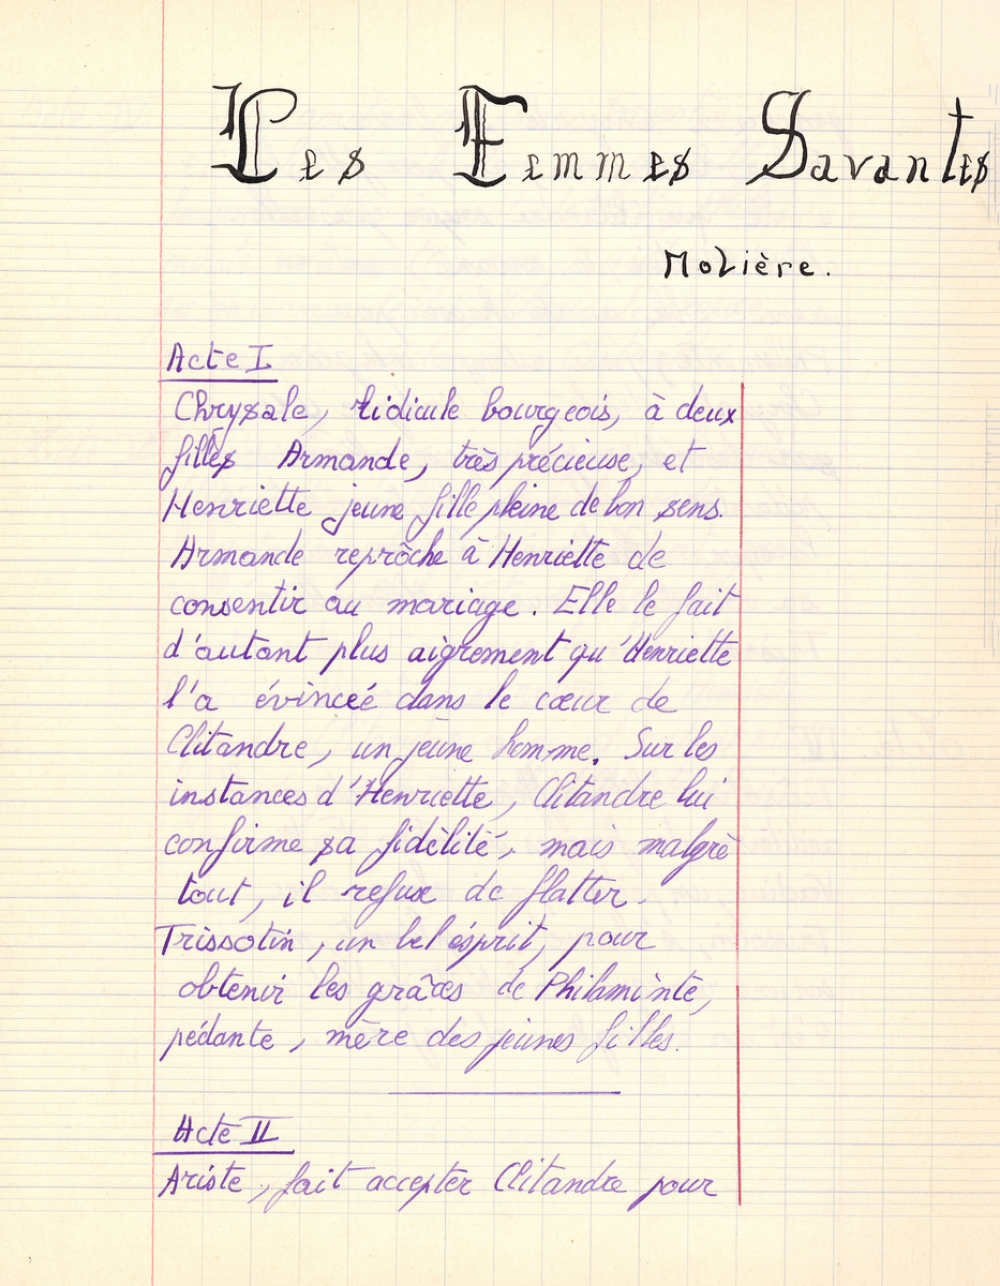 Les Femmes Savantes
Molière.
Acte I
Chrysale, ridicule bourgeois, à deux
filles Armande, très précieuse, et
Henriette jeune fille pleine de bon sens.
Armande reprôche à Henriette de
consentir au mariage. Elle le fait
d'autant plus aigrement qu'Henriette
l'a évinceé dans le cœur de
Clitandre, un jeune homme. Sur les
instances d'Henriette, Clitandre lui
confirme sa fidélité, mais malgré
tout, il refuse de flatter.
Trissotin, un bel ésprit, pour
obtenir les grâces de Philaminte,
pédante, mère des jeunes filles.
Acte II
Ariste, fait accepter Clitandre pour